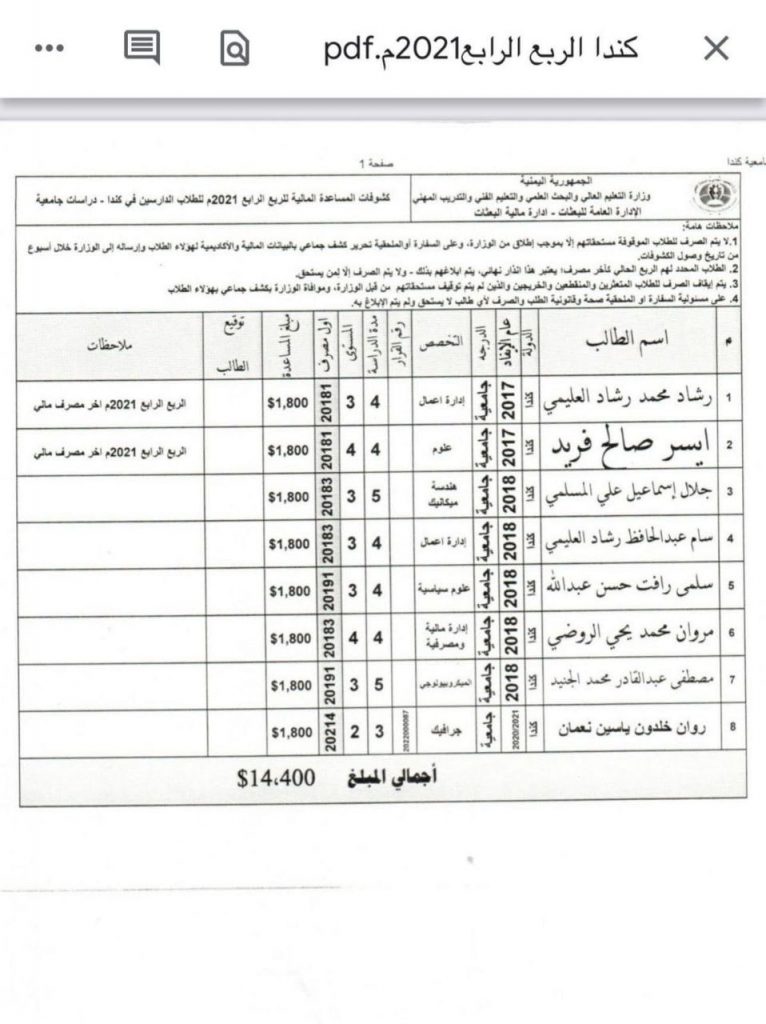 كندا الربع الرابع2021م.pdf
صفحة 1
امعية كندا
الجمهورية اليمنية
وزارة التعليم العالي والبحث العلمي والتعليم الفني والتدريب المهني
الإدارة العامة للبعثات - ادارة مالية البعثات
كشوفات المساعدة المالية للربع الرابع 2021م للطلاب الدارسين في كندا - دراسات جامعية
ملاحظات هامة:
1. لا يتم الصرف للطلاب الموقوفة مستحقاتهم إلا بموجب إطلاق من الوزارة، وعلى السفارة أوالملحقية تحرير كشف جماعي بالبيانات المالية والأكاديمية لهولاء الطلاب وإرساله إلى الوزارة خلال أسبوع
من تاريخ وصول الكشوفات.
2. الطلاب المحدد لهم الربع الحالي كآخر مصرف؛ يعتبر هذا انذار نهائي، يتم ابلاغهم بذلك - ولا يتم الصرف إلا لمن يستحق.
3. يتم إيقاف الصرف للطلاب المتعثرين والمنقطعين والخريجين والذين لم يتم توقيف مستحقاتهم من قبل الوزارة، وموافاة الوزارة بكشف جماعي بهؤلاء الطلاب
4. على مسئولية السفارة او الملحقية صحة وقانونية الطلب والصرف لأي طالب لا يستحق ولم يتم الإبلاغ به.
م اسم الطالب الدولة عام الإيفاد الدرجه التخصص رقم القرار مدة الدراسة المستوى اول مصرف مبلغ المساعدة توقيع الطالب ملاحظات
1 رشاد محمد رشاد العليمي كندا 2017 جامعية إدارة اعمال 4 3 20181 $1,800 الربع الرابع 2021م اخر مصرف مالي
2 ايسر صالح فريد كندا 2017 جامعية علوم 4 4 20181 $1,800 الربع الرابع 2021م اخر مصرف مالي
3 جلال إسماعيل علي المسلمي كندا 2018 جامعية هندسة ميكانيك 5 3 20183 $1,800
4 سام عبدالحافظ رشاد العليمي كندا 2018 جامعية إدارة اعمال 4 3 20183 $1,800
5 سلمى رافت حسن عبدالله كندا 2018 جامعية علوم سياسية 4 3 20191 $1,800
6 مروان محمد يحي الروضي كندا 2018 جامعية إدارة مالية ومصرفية 4 4 20183 $1,800
7 مصطفى عبدالقادر محمد الجنيد كندا 2018 جامعية الميكروبيولوجي 5 3 20191 $1,800
8 روان خلدون ياسين نعمان كندا 2020/2021 جامعية جرافيك 2022000087 3 2 20214 $1,800
أجمالي المبلغ $14,400